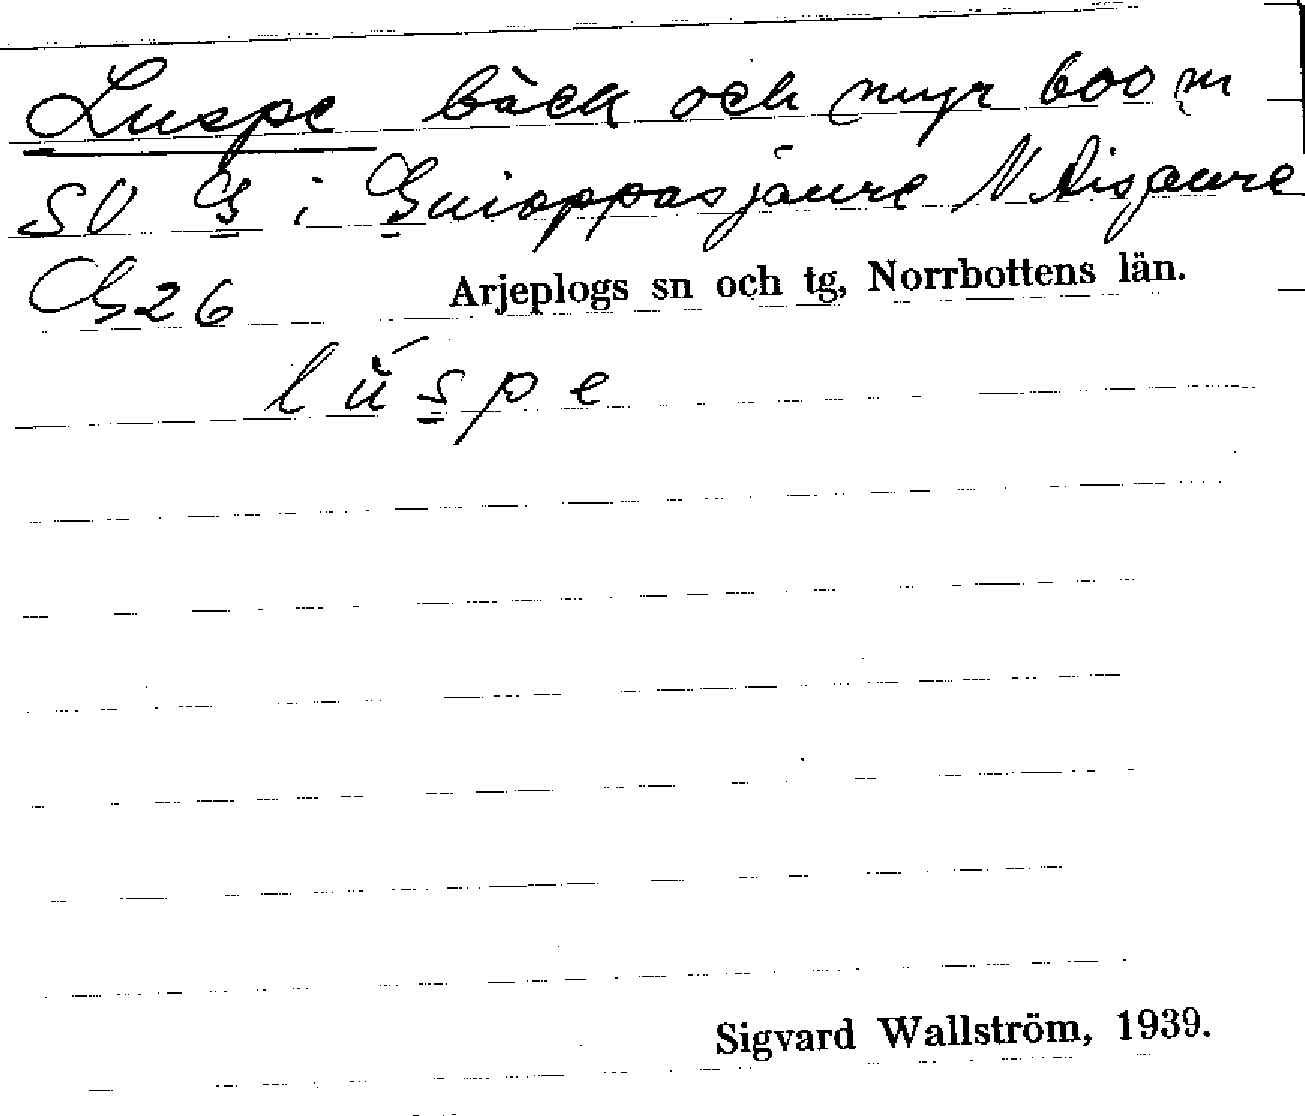 Luspe bäck och myr 600 m
SV G i Guioppasjaure N Aisjaure
G26 Arjeplogs sn och tg, Norrbottens län.
lŭ́s̱pe
Sigvard Wallström, 1939.